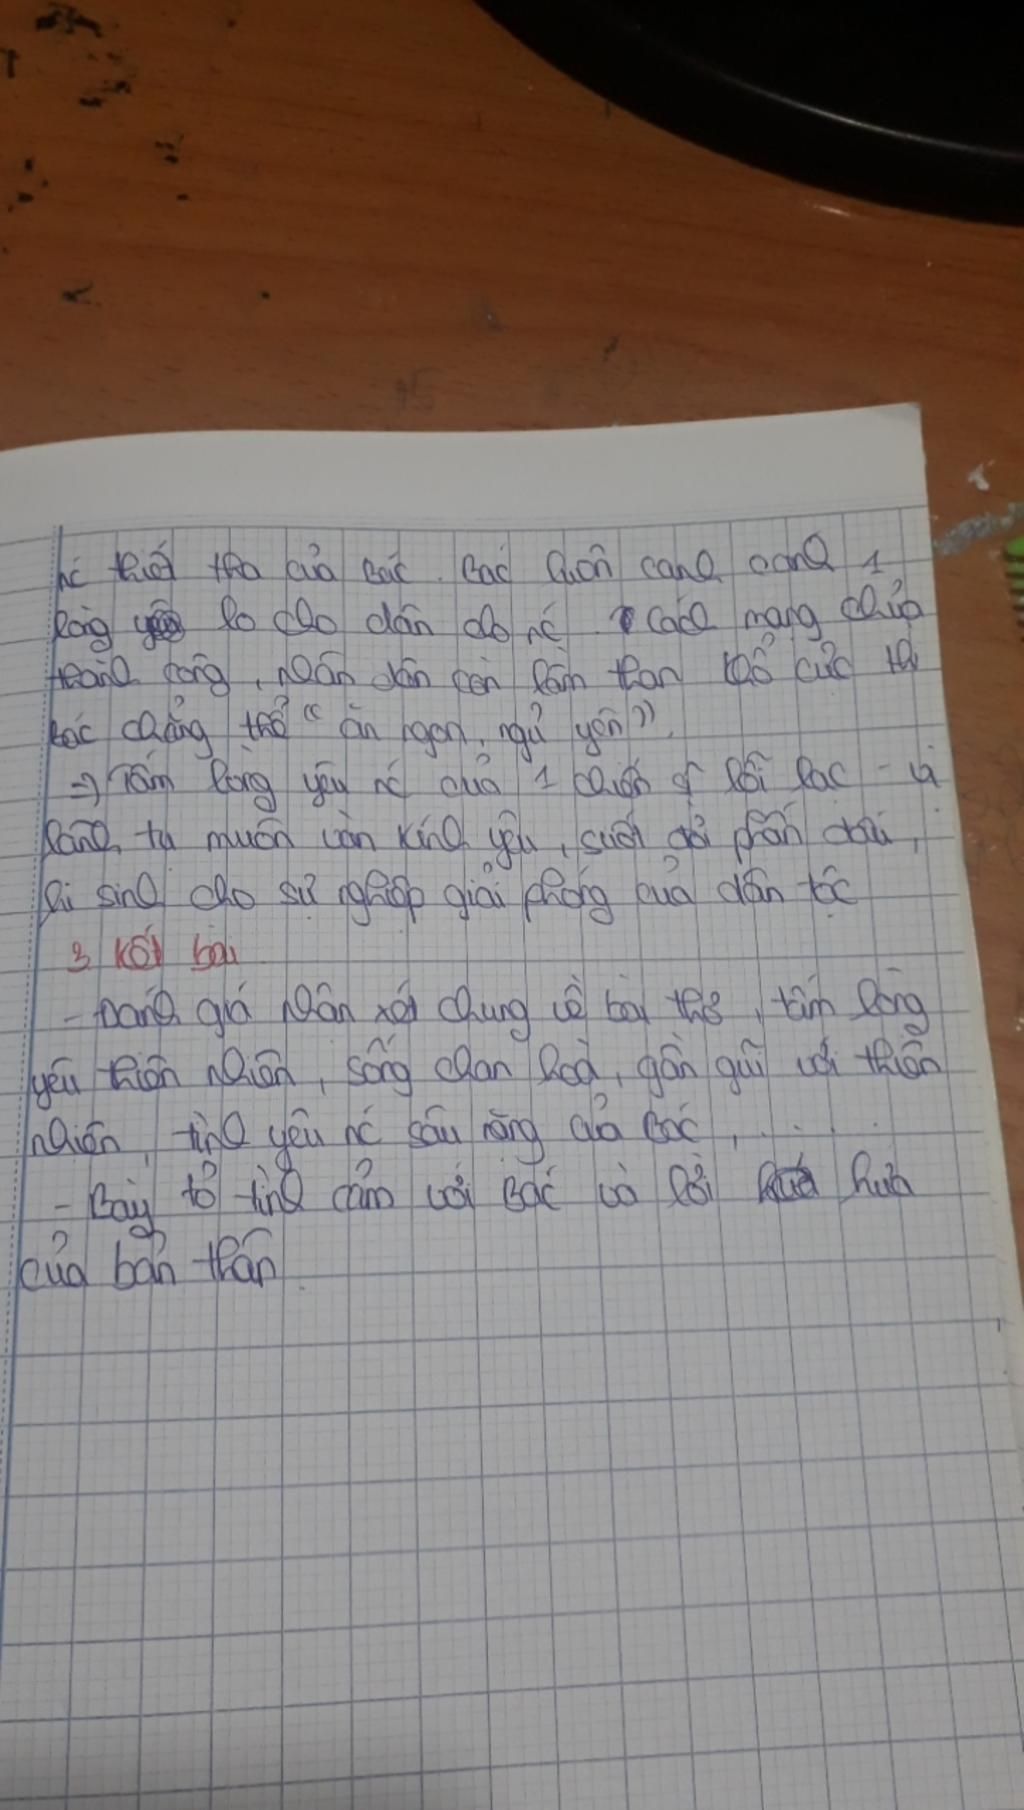 nc thiết tha của Bác. Bác luôn canh cánh 1
lòng lo cho dân cho nc. Cách mạng chưa
thành công, nhân dân còn lầm than khổ cực thì
Bác chẳng thể "ăn ngon, ngủ yên".
=> Tấm lòng yêu nc của 1 chiến sĩ lỗi lạc - vị
lãnh tụ muôn vàn kính yêu, suốt đời phấn đấu,
hi sinh cho sự nghiệp giải phóng của dân tộc
3. Kết bài
- Đánh giá nhận xét chung về bài thơ, tấm lòng
yêu thiên nhiên, sống chan hoà, gần gũi với thiên
nhiên, tình yêu nc sâu nặng của Bác, . . . .
- Bày tỏ tình cảm với Bác và lời hứa
của bản thân.